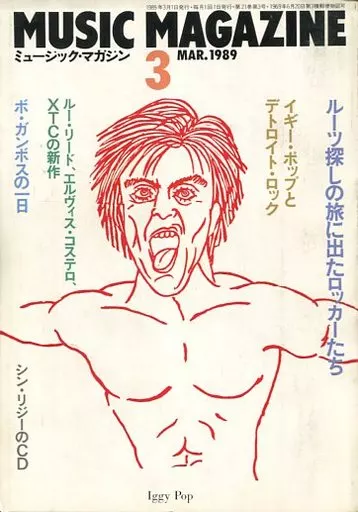 1989年3月1日発行・毎月1回1日発行・第21巻第3号・1969年6月20日第3種郵便物認可
MUSIC MAGAZINE
ミュージック・マガジン
3
MAR.1989
ルーツ探しの旅に出たロッカーたち
イギー・ポップと
デトロイト・ロック
ルー・リード、エルヴィス・コステロ、
XTCの新作
ボ・ガンボスの一日
シン・リジーのCD
Iggy Pop